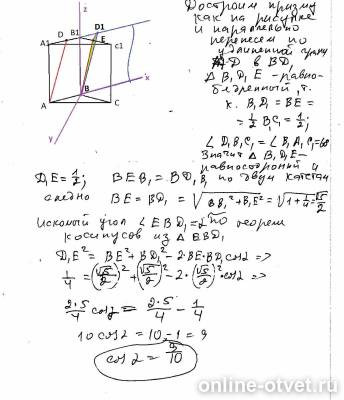 Достроим призму
как на рисунке
и параллельно
перенесем по
удлиненной грани
AD в BD₁
△ B₁D₁E - равно-
бедренный, т.
к. B₁D₁ = BE =
= 1/2 B₁C₁ = 1/2;
∠ D₁B₁C₁ = ∠ B₁A₁C₁ = 60
Значит △ B₁D₁E -
равносторонний и
D₁E = 1/2; BEB₁ = BD₁B₁ по двум катетам
BE = BD₁ = √(BB₁² + B₁E²) = √(1 + 1/4) = √5/2
Искомый угол ∠ EBD₁ = α по теорем
косинусов из △ EBD₁
D₁E² = BE² + BD₁² - 2·BE·BD₁ cos α =>
1/4 = (√5/2)² + (√5/2)² - 2·(√5/2)²·cos α =>
2·5/4 cos α = 2·5/4 - 1/4
10 cos α = 10 - 1 = 9
cos α = 9/10
z
D1
D B1
A1 E C1
x
B
A C
y
online-otvet.ru